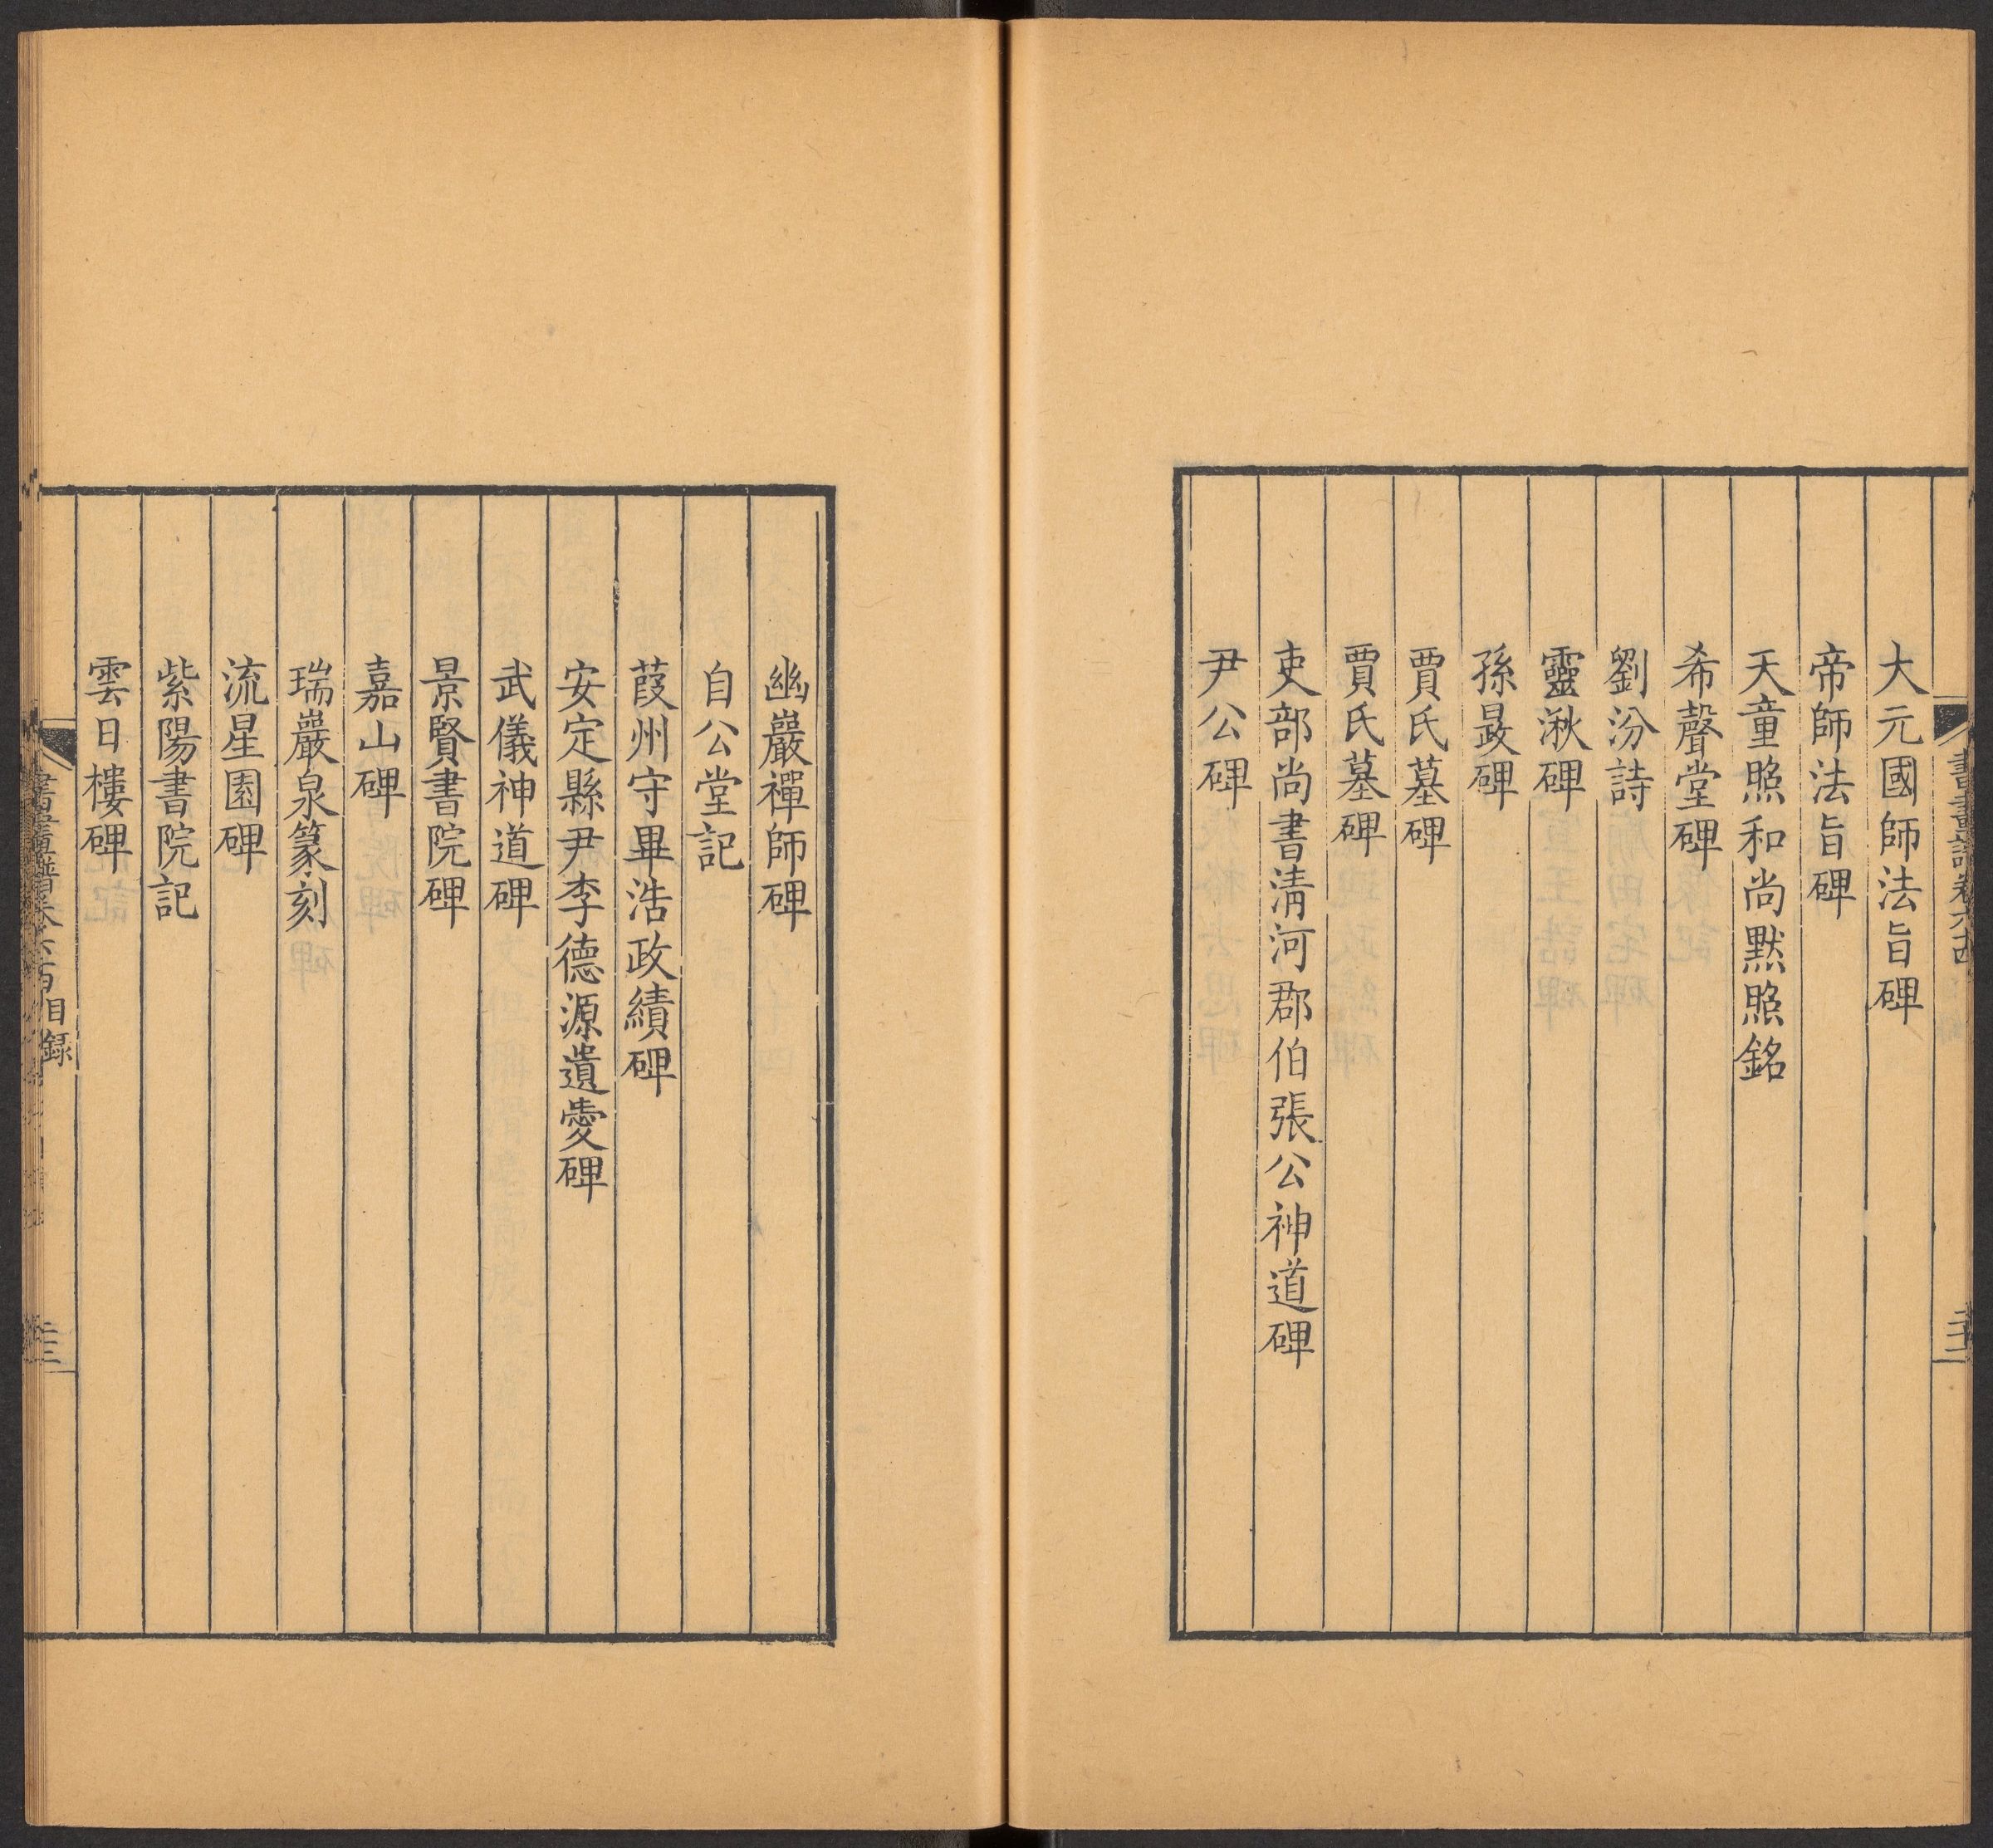 大元國師法旨碑
帝師法旨碑
天童照和尚默照銘
希聲堂碑
劉汾詩
靈湫碑
孫晸碑
賈氏墓碑
賈氏墓碑
吏部尚書清河郡伯張公神道碑
尹公碑
幽巖禪師碑
自公堂記
葭州守畢浩政績碑
安定縣尹李德源遺愛碑
武儀神道碑
景賢書院碑
嘉山碑
瑞巖泉篆刻
流星園碑
紫陽書院記
雲日樓碑
目錄